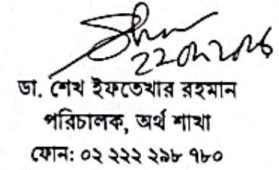 ডা. শেখ ইফতেখার রহমান
পরিচালক, অর্থ শাখা
ফোন: ০২ ২২২ ২৯৮ ৭৮০